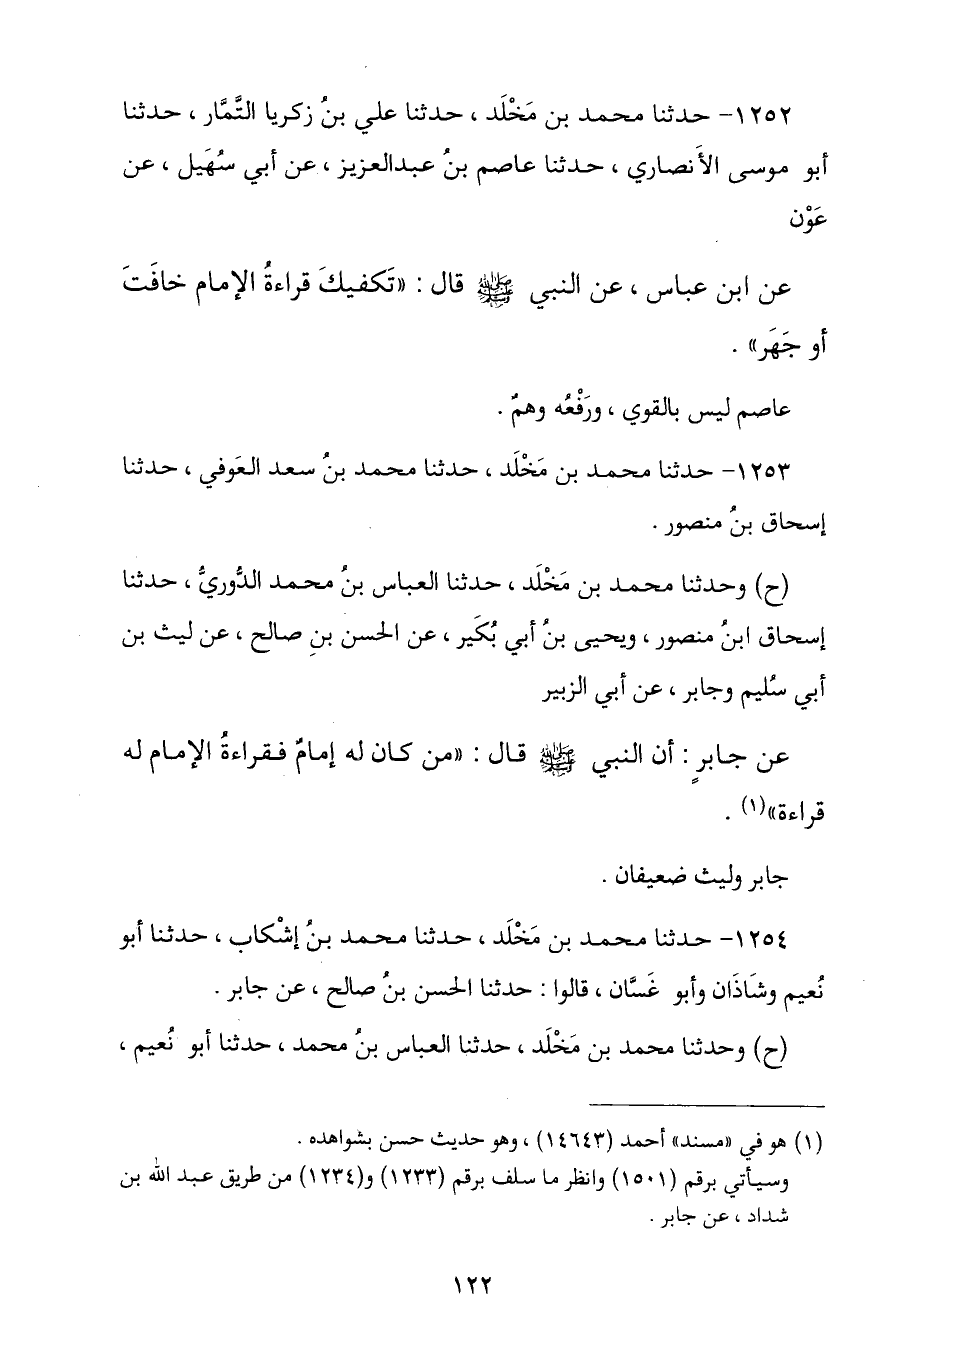 ١٢٥٢- حدثنا محمد بن مَخْلَد ، حدثنا علي بنُ زكريا التَّمَّار ، حدثنا
أبو موسى الأَنصاري ، حدثنا عاصم بنُ عبدالعزيز ، عن أبي سُهَيل ، عن
عَوْن
عن ابن عباس ، عن النبي ﷺ قال : «تَكفيكَ قراءةُ الإمام خافَتَ
أو جَهَر» .
عاصم ليس بالقوي ، ورَفْعُه وهمٌ .
١٢٥٣- حدثنا محمد بن مَخْلَد ، حدثنا محمد بنُ سعد العَوفي ، حدثنا
إسحاق بنُ منصور .
(ح) وحدثنا محمد بن مَخْلَد ، حدثنا العباس بنُ محمد الدُّوريُّ ، حدثنا
إسحاق ابنُ منصور ، ويحيى بنُ أبي بُكَير ، عن الحسن بنِ صالح ، عن ليث بن
أبي سُليم وجابر ، عن أبي الزبير
عن جابرٍ : أن النبي ﷺ قال : «من كان له إمامٌ فقراءةُ الإمام له
قراءة»(١) .
جابر وليث ضعيفان .
١٢٥٤- حدثنا محمد بن مَخْلَد ، حدثنا محمد بنُ إشْكاب ، حدثنا أبو
نُعيم وشَاذَان وأبو غَسَّان ، قالوا : حدثنا الحسن بنُ صالح ، عن جابر .
(ح) وحدثنا محمد بن مَخْلَد ، حدثنا العباس بنُ محمد ، حدثنا أبو نُعيم ،
(١) هو في «مسند» أحمد (١٤٦٤٣) ، وهو حديث حسن بشواهده .
وسيأتي برقم (١٥٠١) وانظر ما سلف برقم (١٢٣٣) و(١٢٣٤) من طريق عبد الله بن
شداد ، عن جابر .
١٢٢